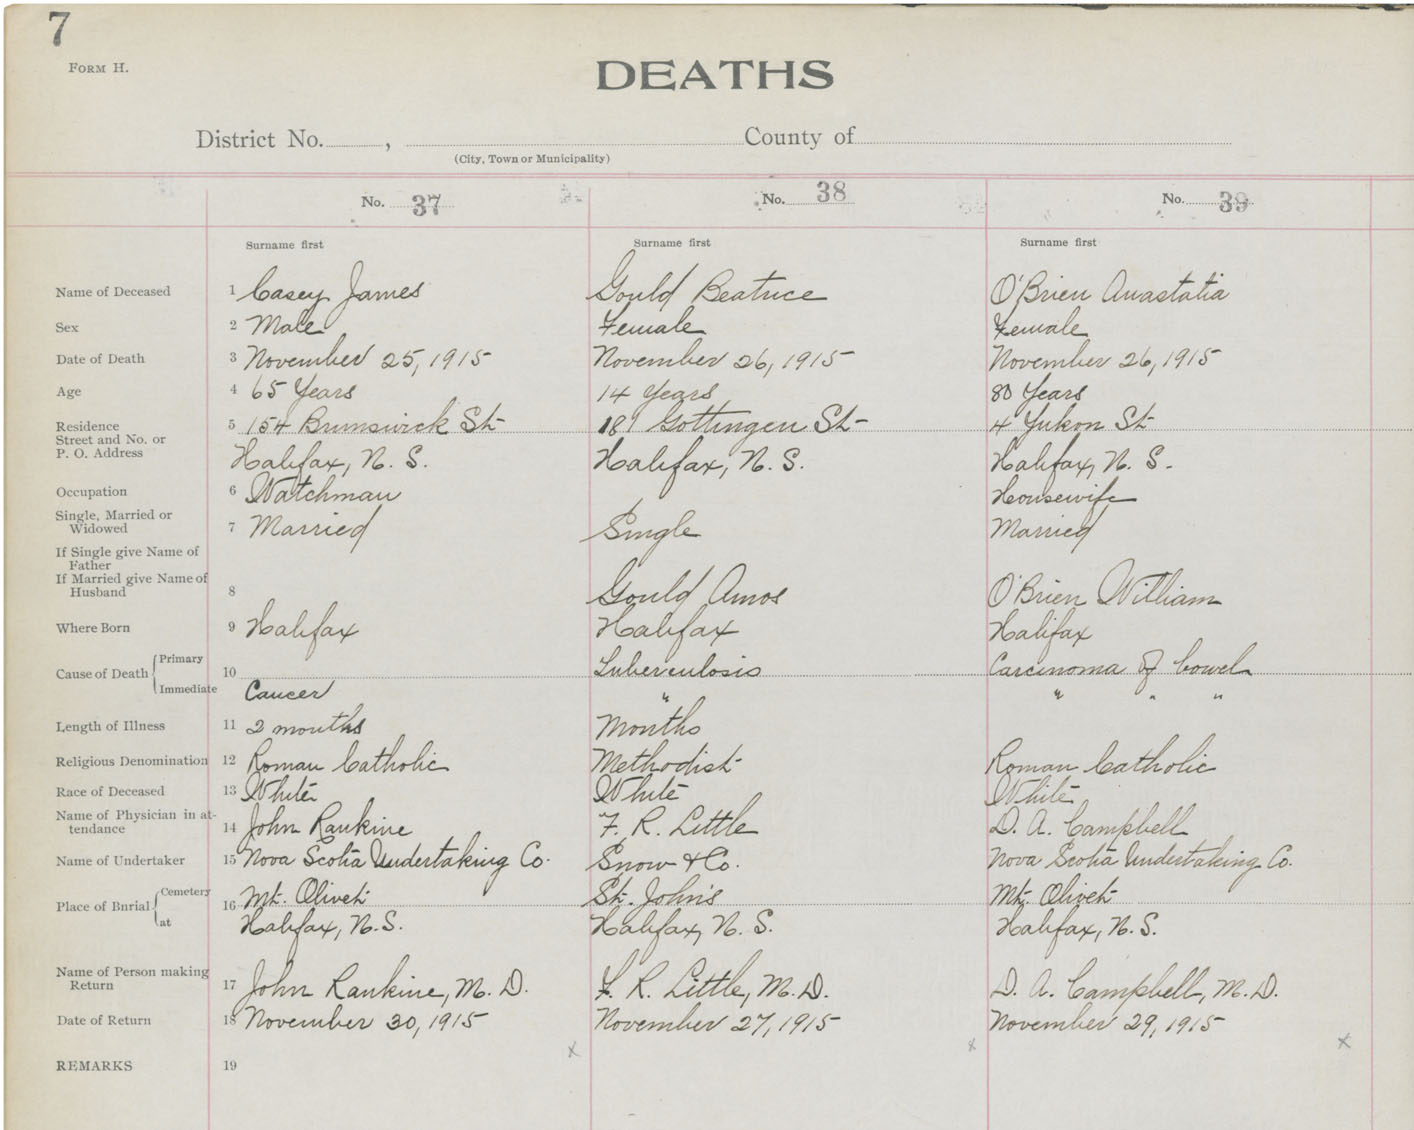 7
FORM H.
DEATHS
District No. , County of
(City, Town or Municipality)
No. 37 No. 38 No. 39
Surname first Surname first Surname first
Name of Deceased 1 Casey James Gould Beatrice O'Brien Anastatia
Sex 2 Male Female Female
Date of Death 3 November 25, 1915 November 26, 1915 November 26, 1915
Age 4 65 Years 14 Years 80 Years
Residence 5 154 Brunswick St 181 Gottingen St 4 Yukon St
Street and No. or
P. O. Address Halifax, N. S. Halifax, N. S. Halifax, N. S.
Occupation 6 Watchman Housewife
Single, Married or
Widowed 7 Married Single Married
If Single give Name of
Father
If Married give Name of
Husband 8 Gould Amos O'Brien William
Where Born 9 Halifax Halifax Halifax
Cause of Death Primary 10 Tuberculosis Carcinoma of bowel
Immediate Cancer " " " "
Length of Illness 11 2 months Months
Religious Denomination 12 Roman Catholic Methodist Roman Catholic
Race of Deceased 13 White White White
Name of Physician in at-
tendance 14 John Rankine F. R. Little D. A. Campbell
Name of Undertaker 15 Nova Scotia Undertaking Co. Snow & Co. Nova Scotia Undertaking Co.
Place of Burial Cemetery 16 Mt. Olivet St. John's Mt. Olivet
at Halifax, N.S. Halifax, N. S. Halifax, N. S.
Name of Person making
Return 17 John Rankine, M. D. F. R. Little, M. D. D. A. Campbell, M. D.
Date of Return 18 November 30, 1915 November 27, 1915 November 29, 1915
x x x
REMARKS 19